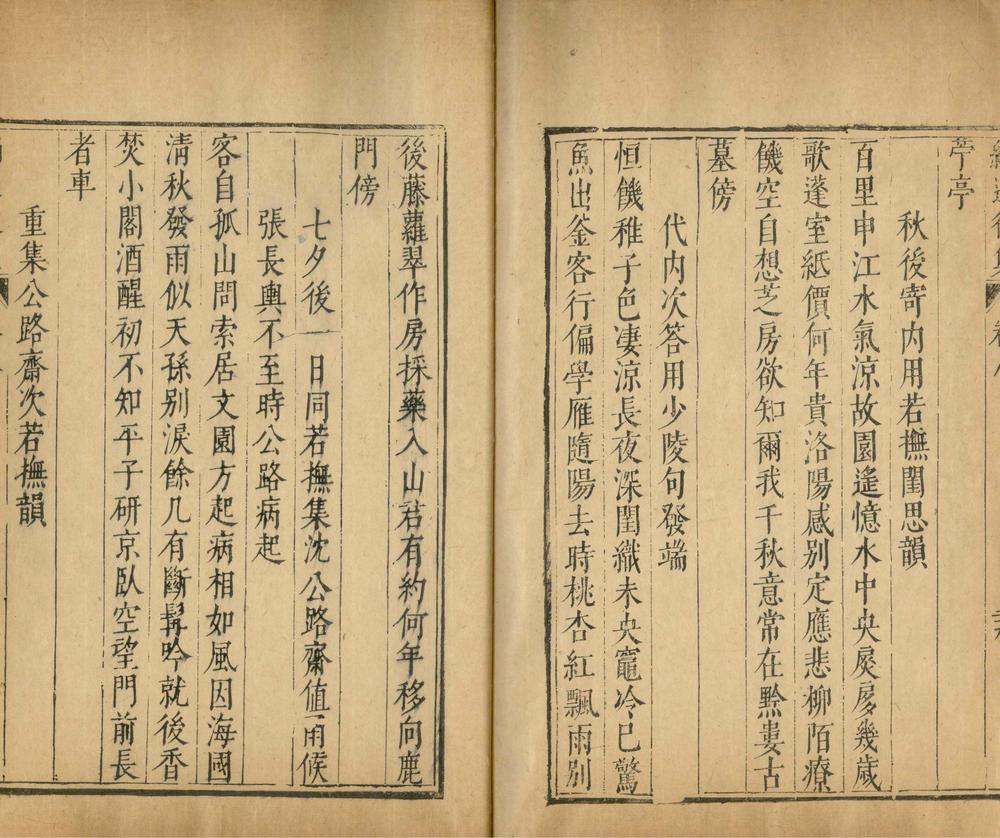 亭
秋後寄内用若撫閨思韻
百里申江水氣涼故園遙憶水中央扊扅幾歲
歌蓬室紙價何年貴洛陽感别定應悲柳陌療
饑空自想芝房欲知爾我千秋意常在黔婁古
墓傍
代内次答用少陵句發端
恒饑稚子色凄涼長夜深閨織未央竈冷已驚
魚出釜客行偏學雁隨陽去時桃杏紅飄雨别
後藤蘿翠作房採藥入山君有約何年移向鹿
門傍
七夕後一日同若撫集沈公路齋值雨候
張長輿不至時公路病起
客自孤山問索居文園方起病相如風因海國
清秋發雨似天孫别淚餘几有斷髯吟就後香
焚小閣酒醒初不知平子研京臥空望門前長
者車
重集公路齋次若撫韻